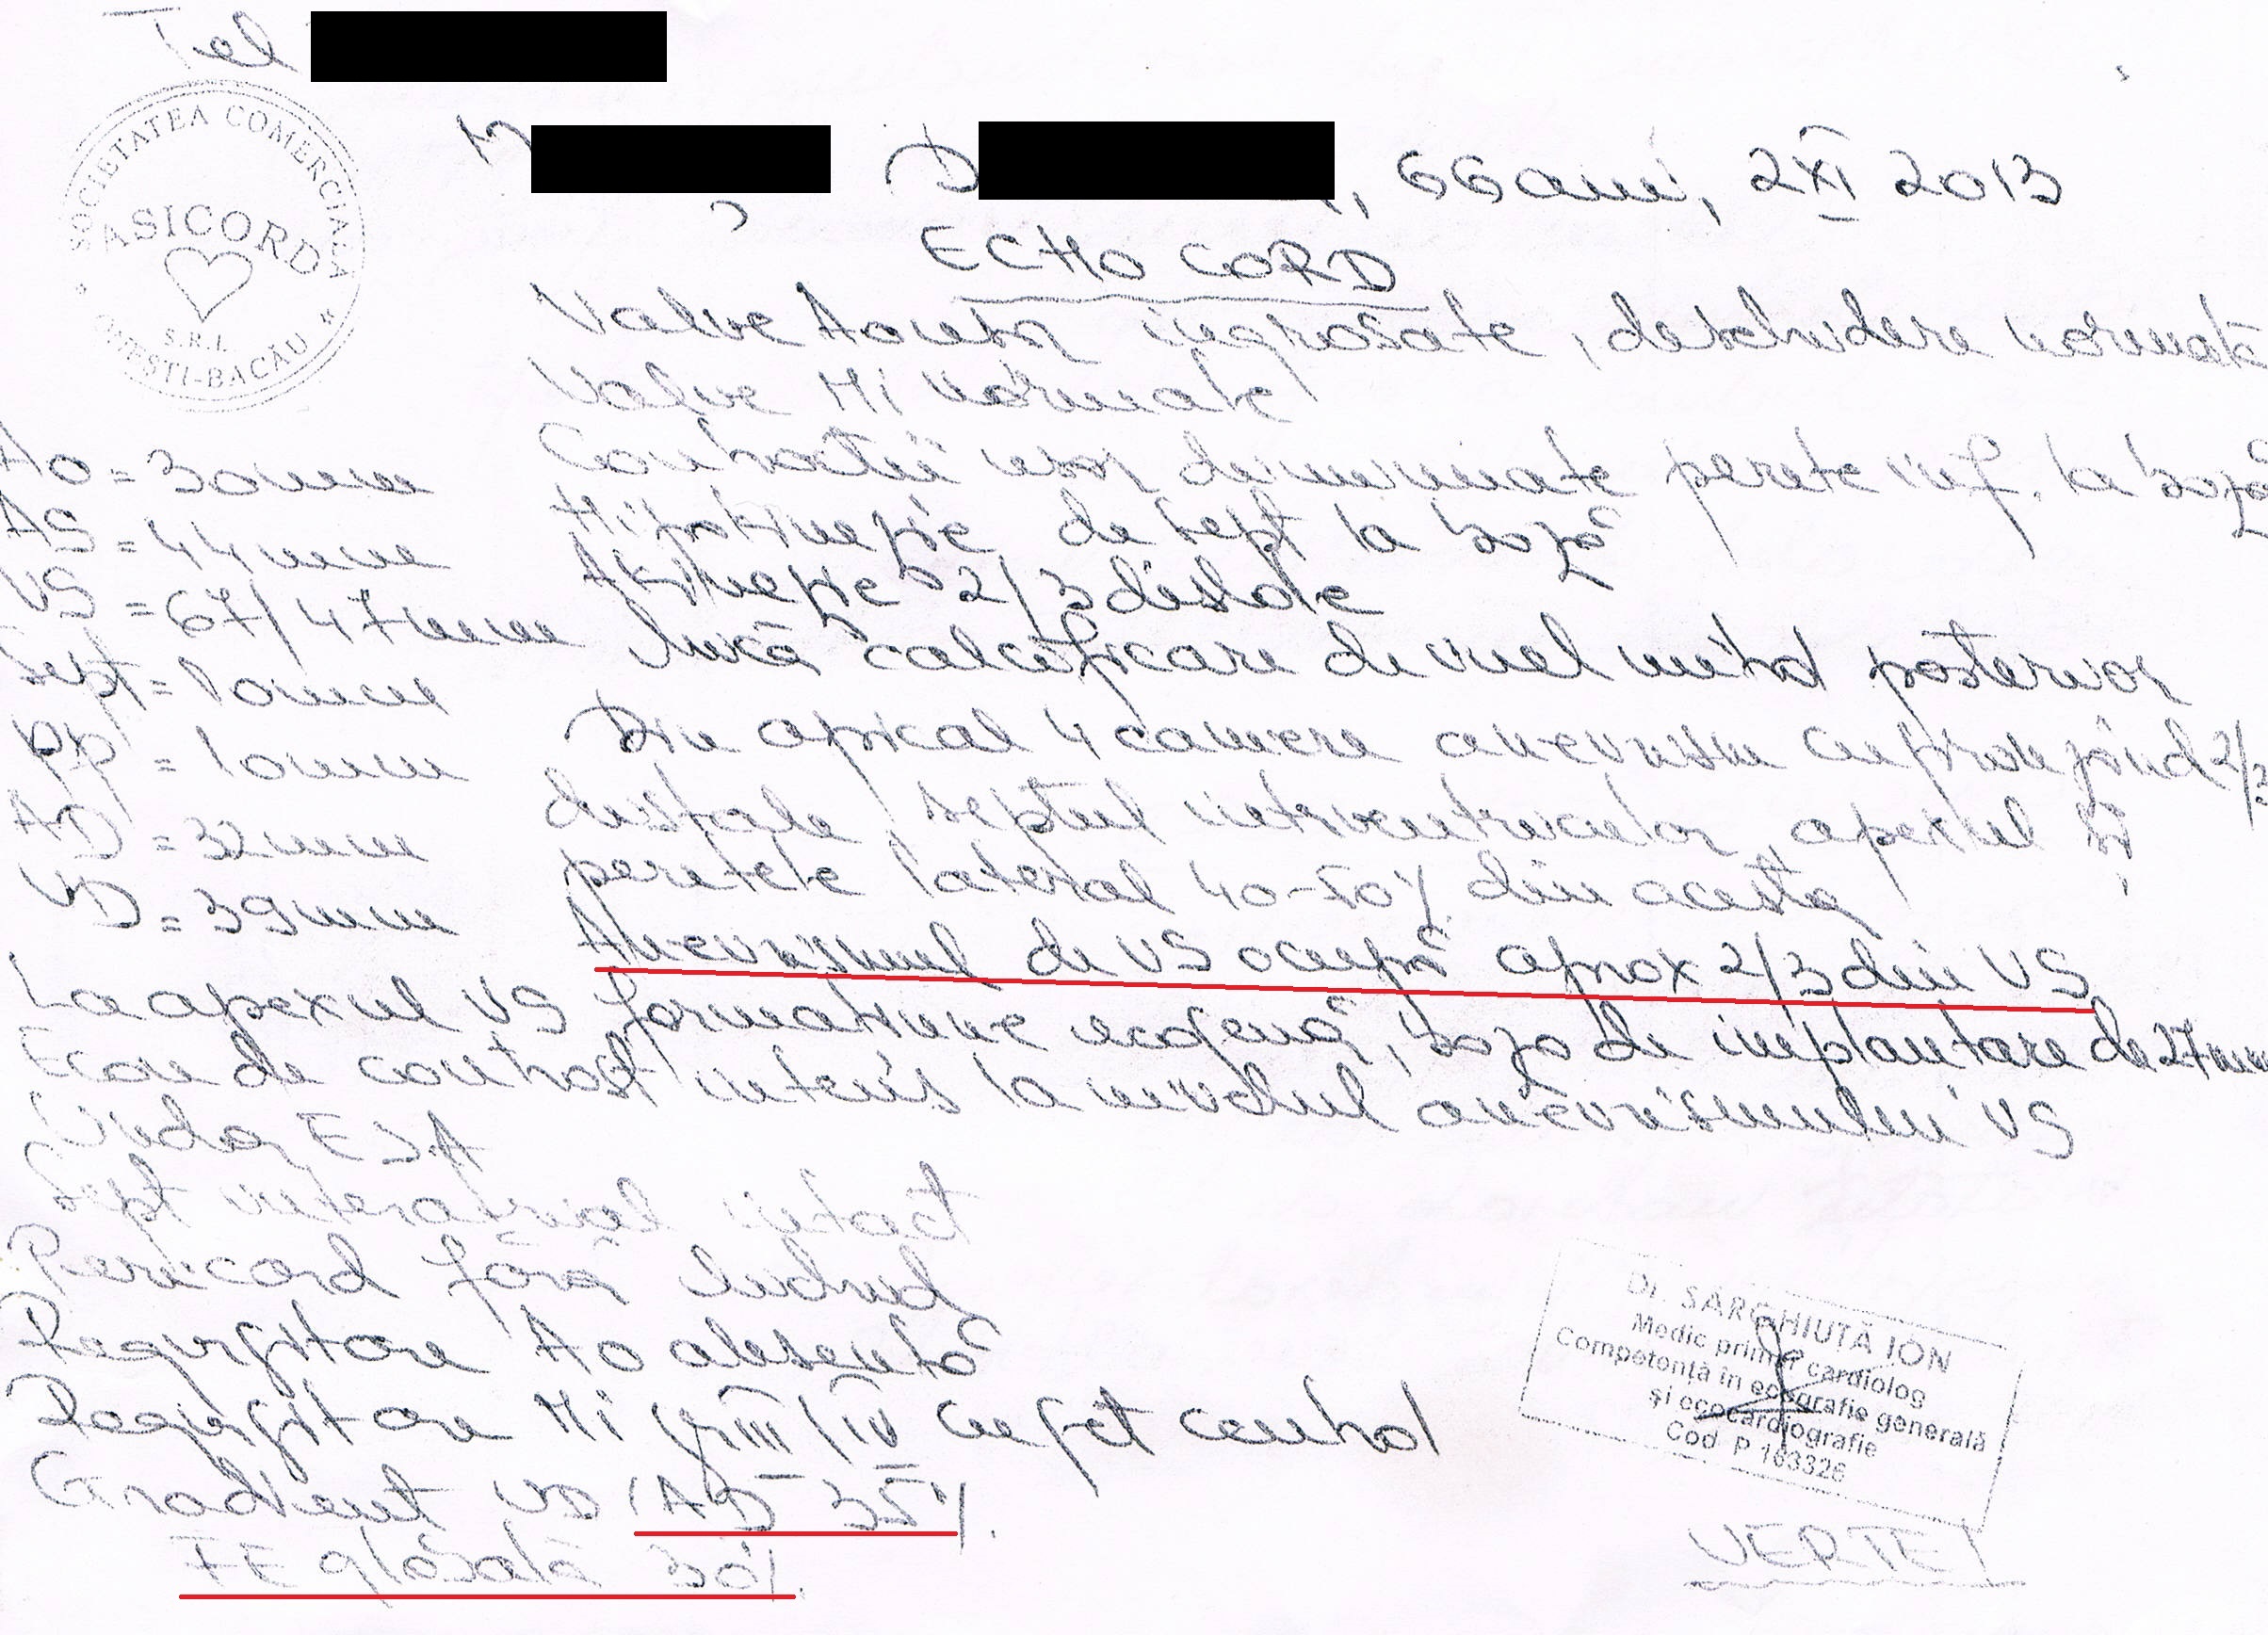 Tel
SOCIETATEA COMERCIALĂ
ASICORD
S.R.L.
ONEŞTI-BACĂU
M D , 66 ani, 2 XI 2013
ECHO CORD
Valve Aorta ingrosate, deschidere normală
Valve Mi normale
Contractii usor diminuate perete inf. la bază
Hipokinezie de sept la bază
Akinezie 2/3 distale
Mică calcificare de inel mitral posterior
Din apical 4 camere anevrism cuprinzând 2/3
distale septul interventricular, apexul și
peretele lateral 40-50% din acesta
Anevrismul de VS ocupă aprox 2/3 din VS
Ao = 30mm
AS = 44mm
VS = 67/47mm
Sept = 10mm
PP = 10mm
AD = 32mm
VD = 39mm
La apexul VS formatiune ecogenă, baza de implantare de 27mm
Ecou de contrast intens la nivelul anevrismului VS
Unda E>A
Sept interatrial intact
Pericard fără lichid
Regurgitare Ao absentă
Regurgitare Mi gr III/IV cu jet central
Gradient VD/AD 35%
FE globală 30%
Dr. SARGHIUŢĂ ION
Medic primar cardiolog
Competenţă în ecografie generală
şi ecocardiografie
Cod P 163326
VERTE!